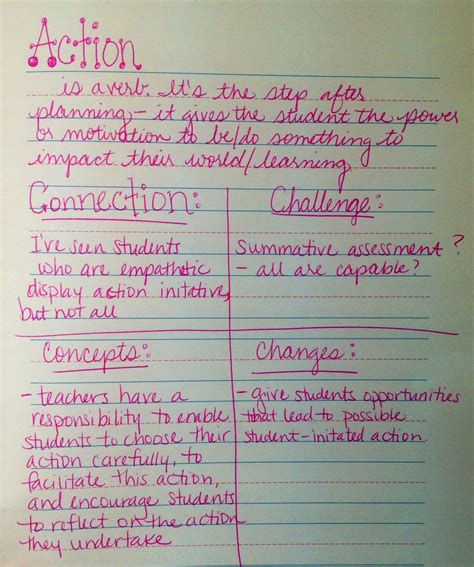 Action
is a verb. It's the step after
planning - it gives the student the power
or motivation to be/do something to
impact their world/learning.
Connection:
I've seen students
who are empathetic
display action initative,
but not all
Challenge:
summative assessment?
- all are capable?
Concepts:
- teachers have a
responsibility to enable
students to choose their
action carefully, to
facilitate this action,
and encourage students
to reflect on the action
they undertake
Changes:
- give students opportunities
that lead to possible
student-initated action